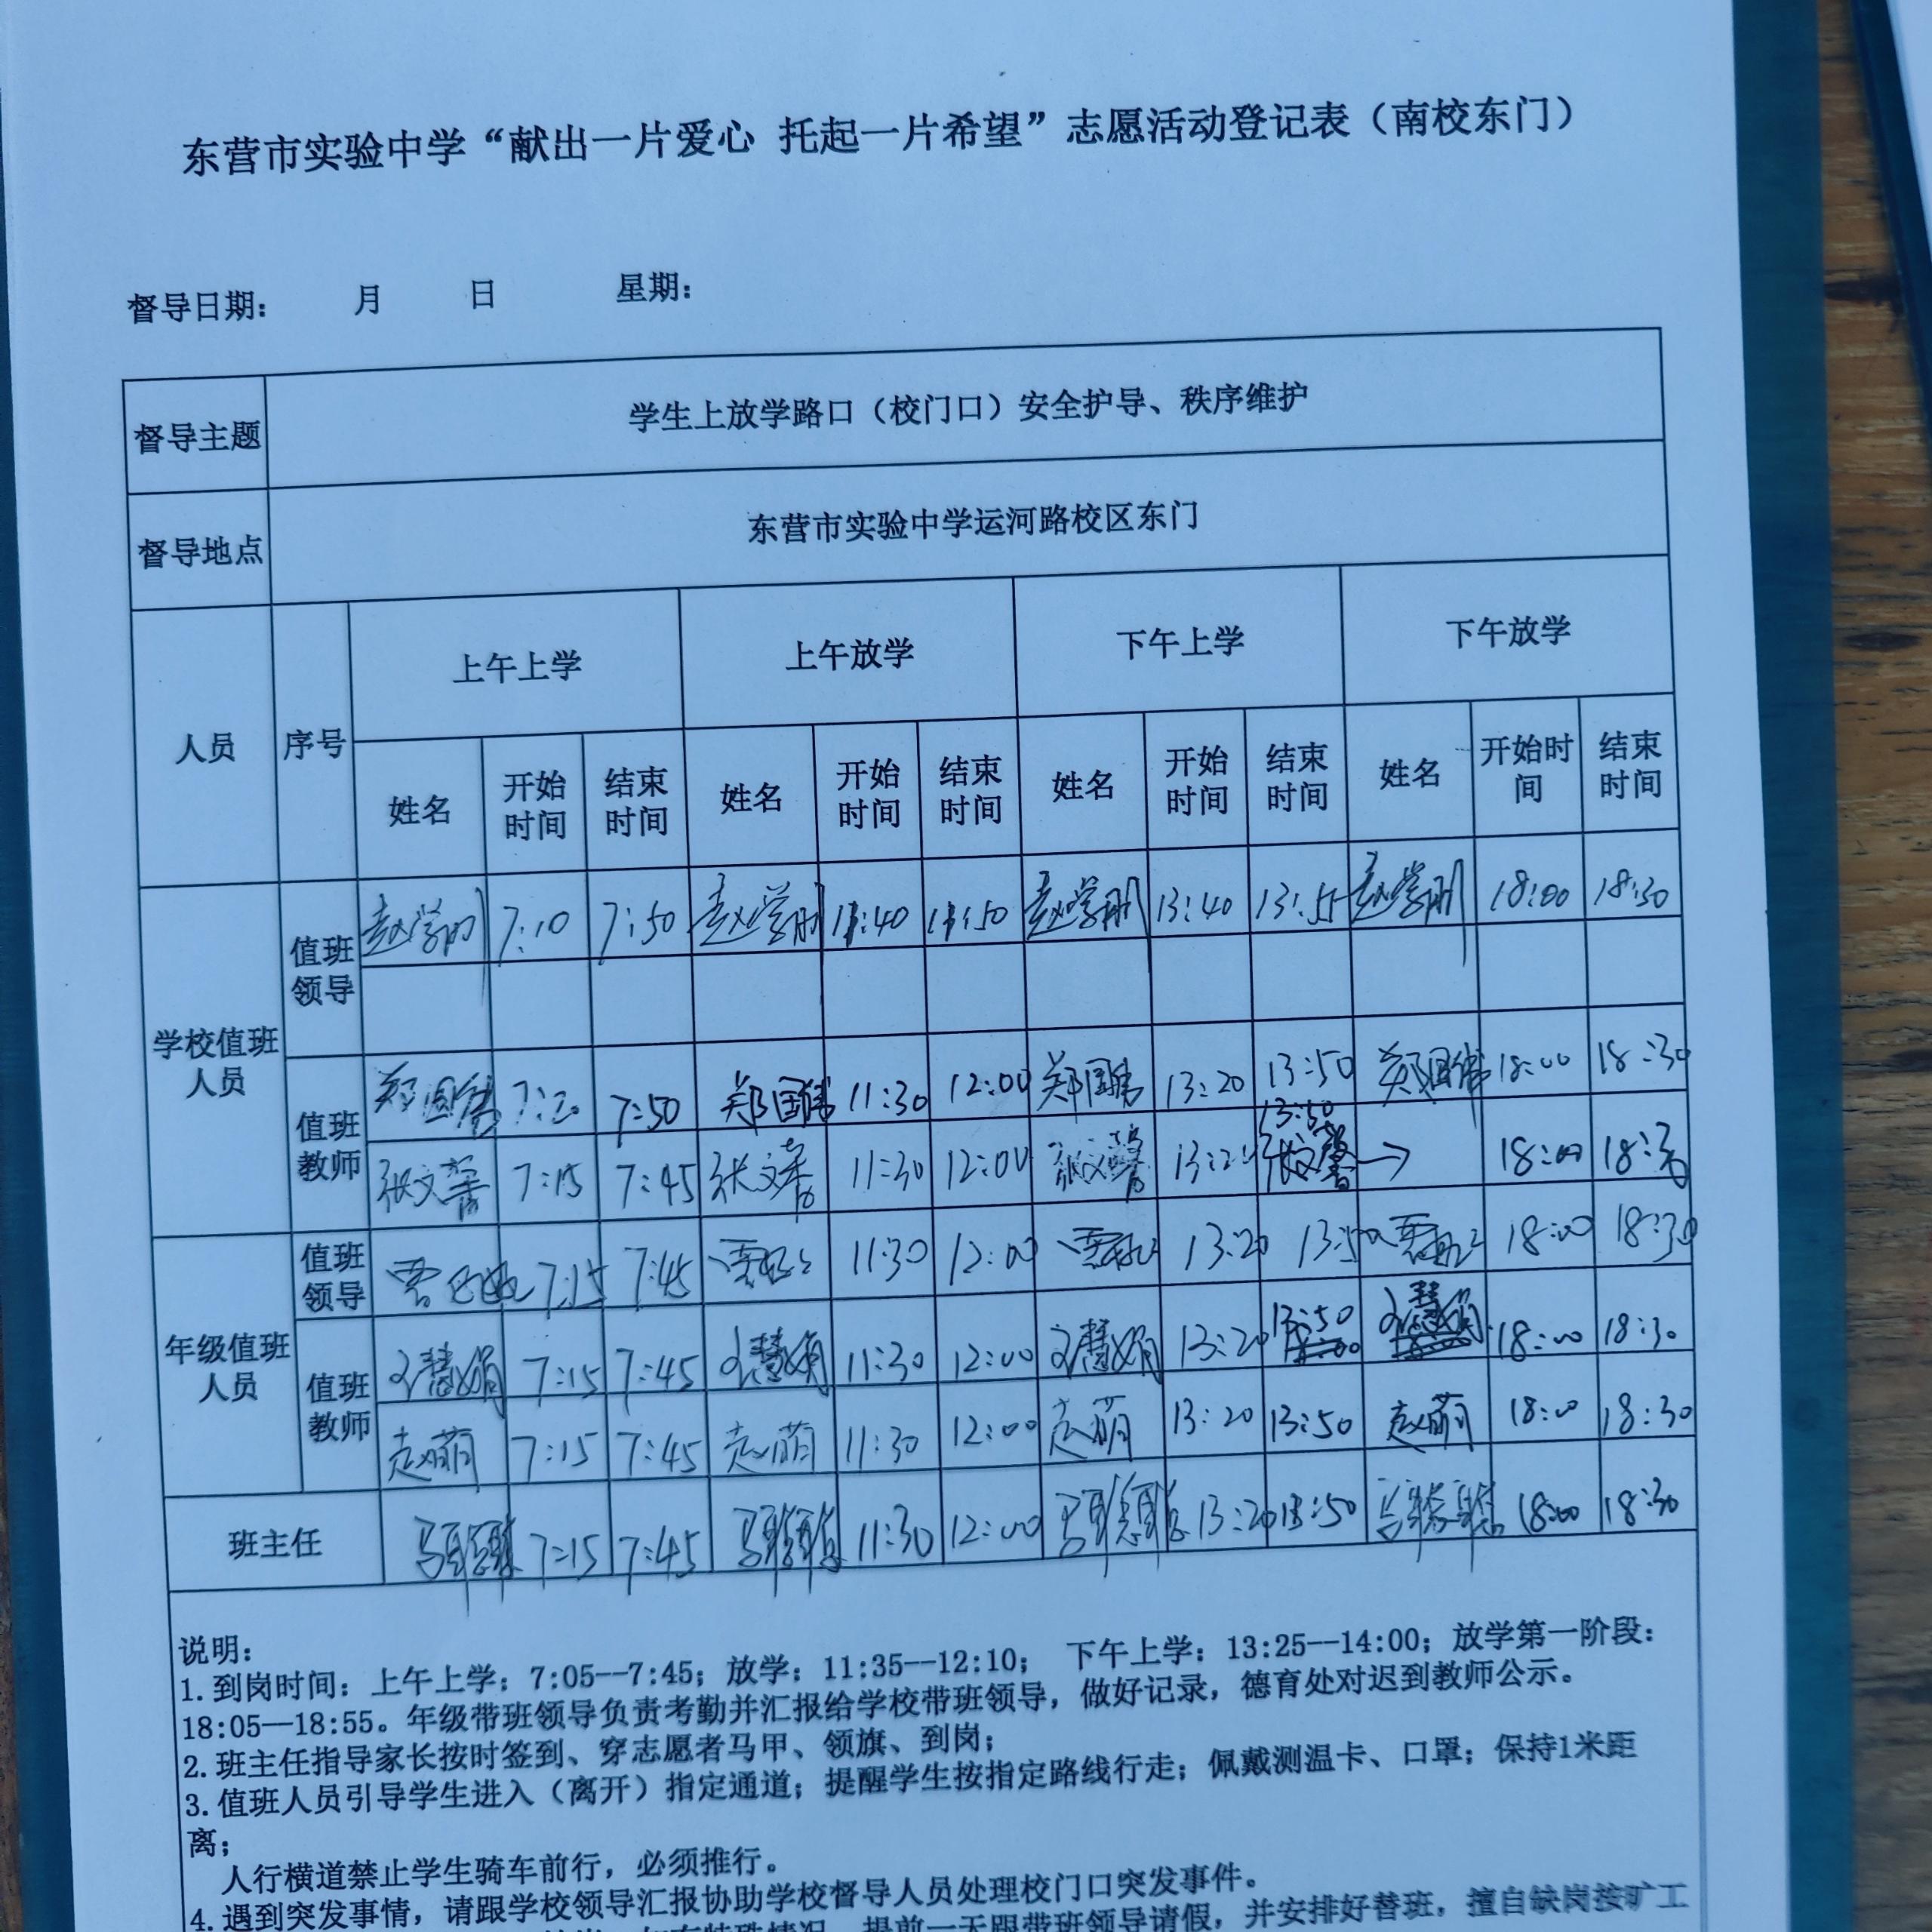 东营市实验中学“献出一片爱心 托起一片希望”志愿活动登记表（南校东门）
督导日期： 月 日 星期：
督导主题 学生上放学路口（校门口）安全护导、秩序维护
督导地点 东营市实验中学运河路校区东门
人员 序号 上午上学 上午放学 下午上学 下午放学
姓名 开始时间 结束时间 姓名 开始时间 结束时间 姓名 开始时间 结束时间 姓名 开始时间 结束时间
学校值班人员
值班领导 7:10 7:50 11:40 11:50 13:40 13:55 18:00 18:30
值班教师 郑国伟 7:20 7:50 郑国伟 11:30 12:00 郑国伟 13:20 13:50 郑国伟 18:00 18:30
张文馨 7:15 7:45 张文馨 11:30 12:00 张文馨 13:20 13:50 张文馨 → 18:00 18:30
年级值班人员
值班领导 7:15 7:45 11:30 12:00 13:20 13:50 18:00 18:30
值班教师 刘慧娟 7:15 7:45 刘慧娟 11:30 12:00 刘慧娟 13:20 13:50 刘慧娟 18:00 18:30
赵萌 7:15 7:45 赵萌 11:30 12:00 赵萌 13:20 13:50 赵萌 18:00 18:30
班主任 7:15 7:45 11:30 12:00 13:20 13:50 18:00 18:30
说明：
1.到岗时间：上午上学：7:05--7:45；放学：11:35--12:10； 下午上学：13:25--14:00；放学第一阶段：
18:05--18:55。年级带班领导负责考勤并汇报给学校带班领导，做好记录，德育处对迟到教师公示。
2.班主任指导家长按时签到、穿志愿者马甲、领旗、到岗；
3.值班人员引导学生进入（离开）指定通道；提醒学生按指定路线行走；佩戴测温卡、口罩；保持1米距
离；
人行横道禁止学生骑车前行，必须推行。
4.遇到突发事情，请跟学校领导汇报协助学校督导人员处理校门口突发事件。
提前一天跟带班领导请假，并安排好替班，擅自缺岗按旷工